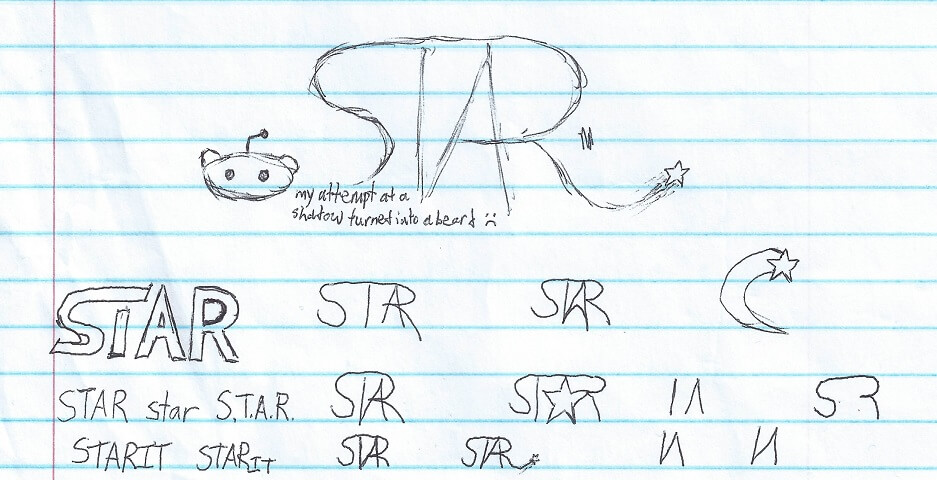 STAR
my attempt at a
shadow turned into a beard :(
STAR STAR STAR
STAR star S.T.A.R. STAR ST★R SR
STARIT STARIT STAR STAR